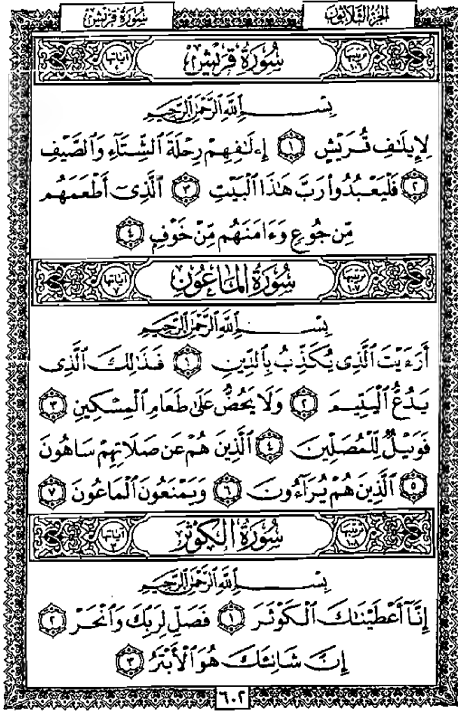 سُورَةُ قُرَيْشٍ الجُزْءُ الثَّلَاثُونَ
سُورَةُ قُرَيْشٍ
بِسْمِ ٱللَّهِ ٱلرَّحْمَٰنِ ٱلرَّحِيمِ
لِإِيلَٰفِ قُرَيْشٍ ١ إِۦلَٰفِهِمْ رِحْلَةَ ٱلشِّتَآءِ وَٱلصَّيْفِ
٢ فَلْيَعْبُدُوا۟ رَبَّ هَٰذَا ٱلْبَيْتِ ٣ ٱلَّذِىٓ أَطْعَمَهُم
مِّن جُوعٍ وَءَامَنَهُم مِّنْ خَوْفٍ ٤
سُورَةُ المَاعُونِ
بِسْمِ ٱللَّهِ ٱلرَّحْمَٰنِ ٱلرَّحِيمِ
أَرَءَيْتَ ٱلَّذِى يُكَذِّبُ بِٱلدِّينِ ١ فَذَٰلِكَ ٱلَّذِى
يَدُعُّ ٱلْيَتِيمَ ٢ وَلَا يَحُضُّ عَلَىٰ طَعَامِ ٱلْمِسْكِينِ ٣
فَوَيْلٌ لِّلْمُصَلِّينَ ٤ ٱلَّذِينَ هُمْ عَن صَلَاتِهِمْ سَاهُونَ
٥ ٱلَّذِينَ هُمْ يُرَآءُونَ ٦ وَيَمْنَعُونَ ٱلْمَاعُونَ ٧
سُورَةُ الكَوْثَرِ
بِسْمِ ٱللَّهِ ٱلرَّحْمَٰنِ ٱلرَّحِيمِ
إِنَّآ أَعْطَيْنَٰكَ ٱلْكَوْثَرَ ١ فَصَلِّ لِرَبِّكَ وَٱنْحَرْ ٢
إِنَّ شَانِئَكَ هُوَ ٱلْأَبْتَرُ ٣
٦٠٢